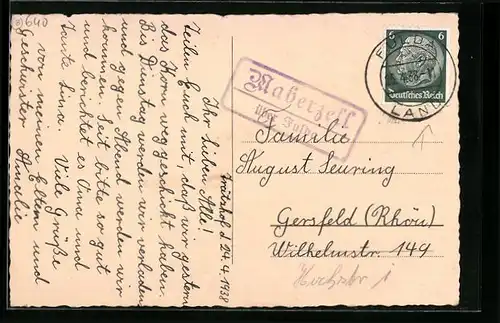 640
Trätzhof 24.4.1938
Ihr lieben Alle!
Teilen Euch mit, daß wir gestern
das Korn weggeschickt haben.
Bis Dienstag werden wir verladen
und gegen Abend werden wir
kommen. Seit bitte so gut
und berichtet es Oma und
Tante Lina. Viele Grüße
von meinen Eltern und
Geschwister Amalie
Maberzell
über Fulda
FULDA
LAND
6 6
Deutsches Reich
Familie
August Seuring
Gersfeld (Rhön)
Wilhelmstr. 149